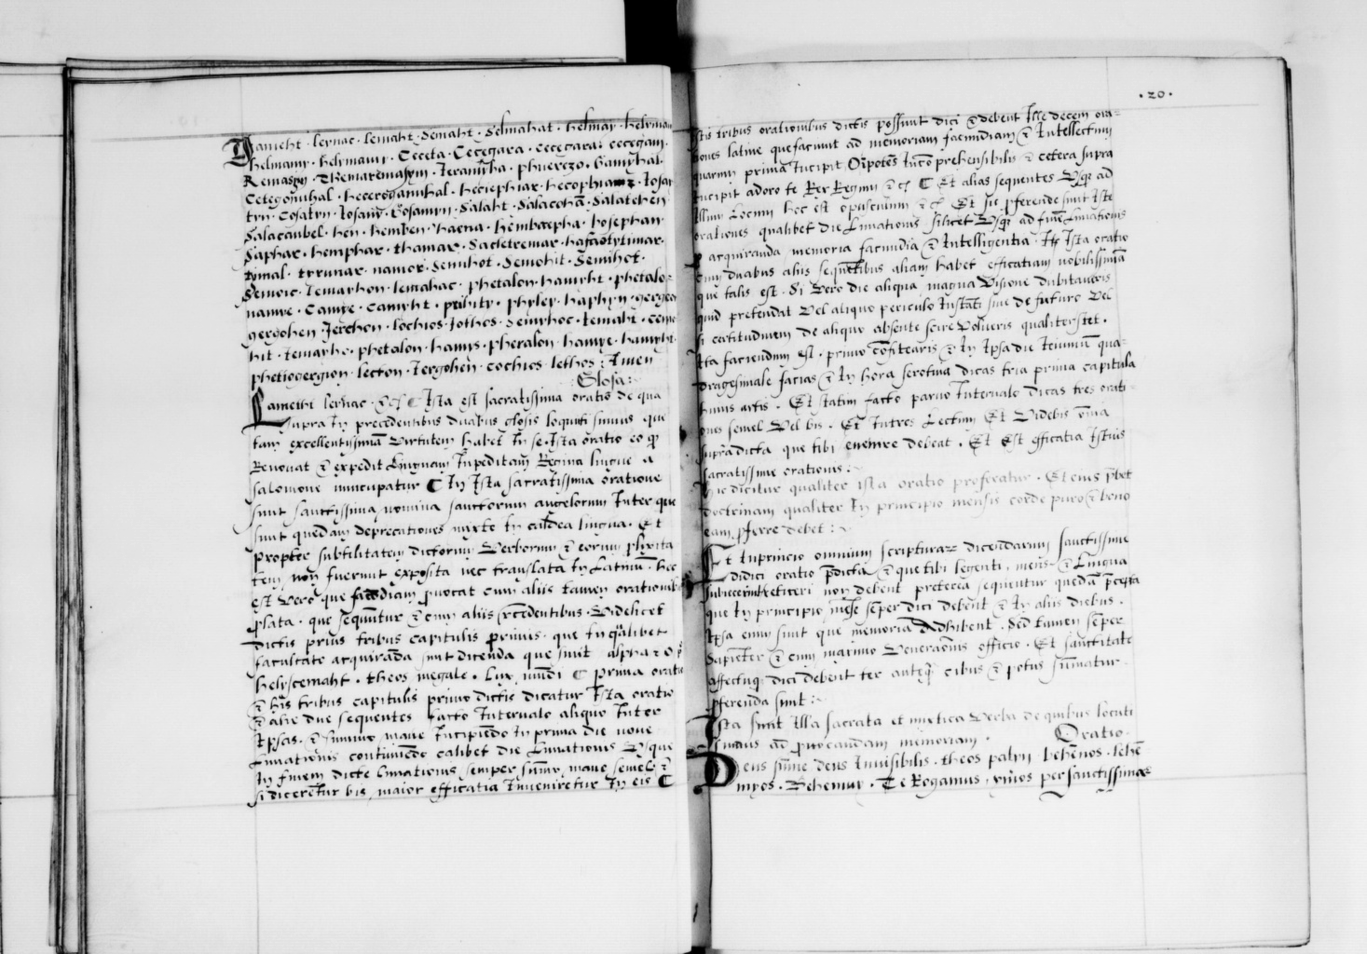 Lameht · lernac · lemaht · Semaht · Selmahat · helmay · helyman
helmamy · helymamy · Ceceta · Cecegara · cecegara · cecegam ·
Ramasym · Themaremasym · Ieramyha · phuerezo · Gamyhal ·
Cetegomhal · heceroganuhal · heciephiar · hecophiamz · Iosar
tyn · Cosatyn · Iosamy · Cosamyn · Salaht · Salacehā · Salatehen
Salacaubel · hen · hemben · haena · hembaepha · hosephar ·
Saphar · hemphar · thamar · Sacletremar · hasaolytimar ·
tymal · tyrunar · namor · Semhot · Semohit · Semihet ·
Semoic · Iemarhon · lemahac · phetalon · hamyht · phetalo-
namye · Camye · Camyht · phihity · phyley · haphyn · gerger
gergohen · Ierehon · lochios · Iothos · Semyhoc · lemaht · ceme
hit · lemayhc · phetalon · hamys · pheralon · hamye · hamyht
phetiogergion · lecton · Iergohen · cochios lethos : Amen
: Glosa :
Lamehi lernac · &c ¶ Ista est sacratissima oratio de qua
supra In precedentibus duabus glosis loquuti sumus · que
tam excellentissimā Virtutem habet In se · Ista oratio eo q̄
Renouat & expedit Linguam Inpeditam Regina lingue a
Salomone nuncupatur ¶ In Ista sacratissima oratione
sunt sanctissima nomina sanctorum angelorum Inter que
sunt quedam deprecationes mixte In caldea lingua · Et
propter subtilitatem dictorum Verborum & eorum plixita
tem non fuerunt exposita nec translata In Latinū · hec
est Vero que facūdiam puocat cum aliis tamen orationib
plata · que sequūtur & cum aliis p̄cedentibus · Videlicet
dictis prius tribus capitulis primis · que In qualibet
facultate acquirāda sunt dicenda que sunt alpha & o
helyscemaht · theos megale · lux mūdi ¶ prima oratio
& his tribus capitulis primo dictis dicatur Ista oratio
& alie due sequentes facto Interualo aliquo Inter
Ipsas · & summo mane Incipiēdo In prima die noue
Lunationis continuēdo calibet die Lunationis Usque
In finem dicte Lunationis semper sūmo mane semel &
si dicerētur bis maior efficatia Inueniretur In eis ¶
· 20 ·
Istis tribus orationibus dictis possunt dici & debent Ille decem ora-
tiones latine que faciunt ad memoriam facundiam & Intellectum
quarum prima Incipit Oīpotēs Incōprehensibilis & cetera supra
Incipit adoro te Rex Regum & cꝭ ¶ Et alias sequentes Usq̄ ad
Illum Locum hoc est opusculum & cꝭ Et sic pferende sunt Iste
orationes qualibet die Lunationis silicet Usq̄ ad finē Lunationis
p acquirenda memoria facundia & Intelligentia · Itē Ista oratio
cum duabus aliis sequētibus aliam habet efficatiam nobilissimā
que talis est · Si Vero die aliqua magna Visione dubitaueris
quid pretendat Vel aliquo periculo Instāti siue de futuro Vel
si certitudinem de aliquo absente scire Volueris qualiter stet ·
Ita faciendum est · primo cōfitearis & In Ipsa die Ieiuniū qua-
dragesimale facias & In hora serotina dicas tria prima capitula
huius artis · Et statim facto paruo Interualo dicas tres orati
ones semel Vel bis · Et Intres Lectum Et Videbis oīa
supradicta que tibi euenire debeat · Et Est efficatia Istius
sacratissime orationis :
hic dicitur qualiter ista oratio proferatur · Et eius p̄bet
doctrinam qualiter In principio mensis corde puro & bono
eam pferre debet :
Et Inprincio omnium scripturarum dicendarum sanctissime
Didici oratio p̄dicta & que tibi legenti mens & Lingua
subuecerint eticeri non debent preterea sequentur quedā p̄cepta
que In principio mēse sēper dici debent & In aliis diebus ·
Ipsa enim sunt que memoriā Adhibent · Sed tamen sēper
Sapienter & cum maximo Venerationis officio · Et sanctitate
affectuq̄ dici debent ter anteq̄ cibus & potus sūmatur ·
pferenda sunt :
Ista sunt Illa sacrata et mistica Verba de quibus locuti
sumus ad prouocandam memoriam · Oratio ·
Deus sūme deus Inuisibilis · theos patyr behēnos · lehē
myos · Behemny · Te Rogamus · vimos per sanctissimas